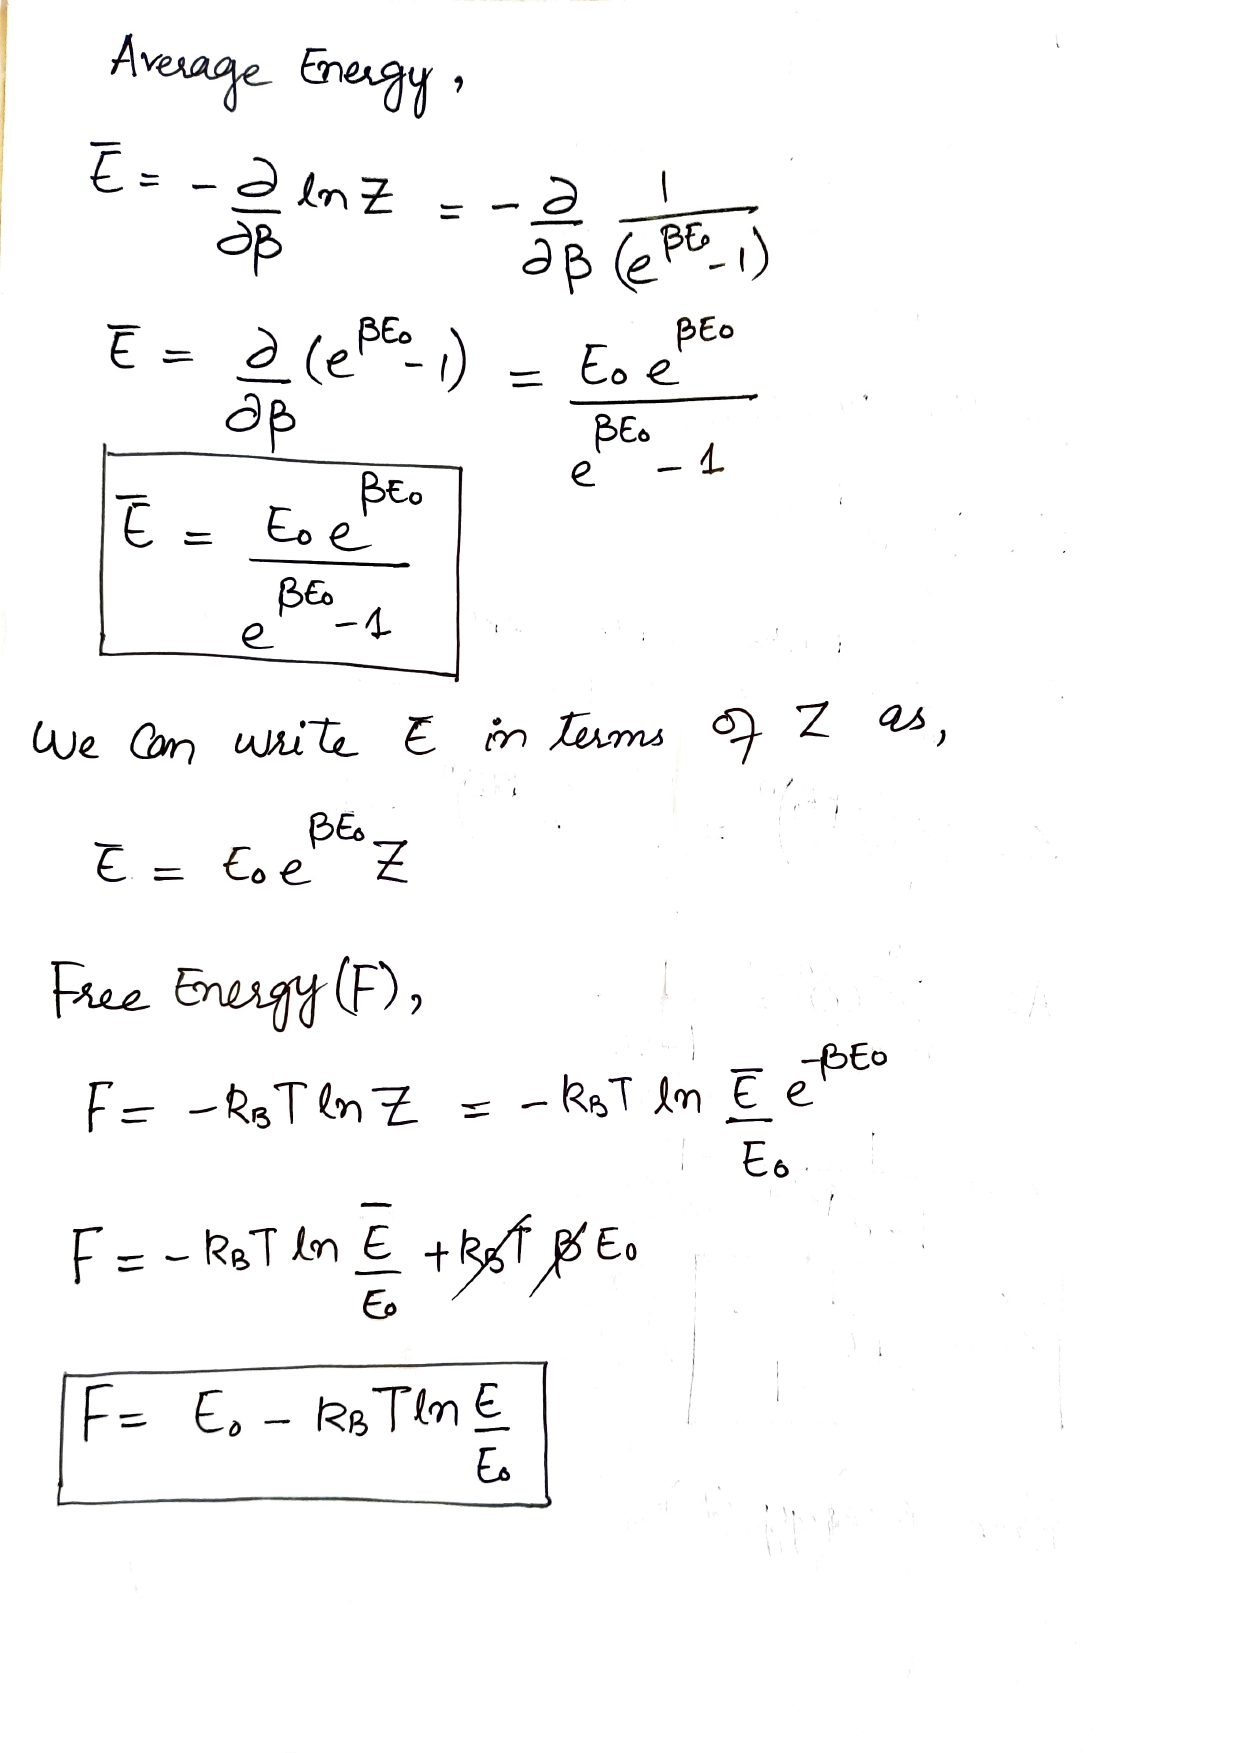 Average Energy,
Ē = - ∂/∂β ln Z = - ∂/∂β 1/(e^{βE₀} - 1)
Ē = ∂/∂β (e^{βE₀} - 1) = E₀ e^{βE₀} / e^{βE₀} - 1
Ē = E₀ e^{βE₀} / e^{βE₀} - 1
We Can write Ē in terms of Z as,
Ē = E₀ e^{βE₀} Z
Free Energy (F),
F = - k_B T ln Z = - k_B T ln Ē/E₀ e^{-βE₀}
F = - k_B T ln Ē/E₀ + k_B T β E₀
F = E₀ - k_B T ln E/E₀